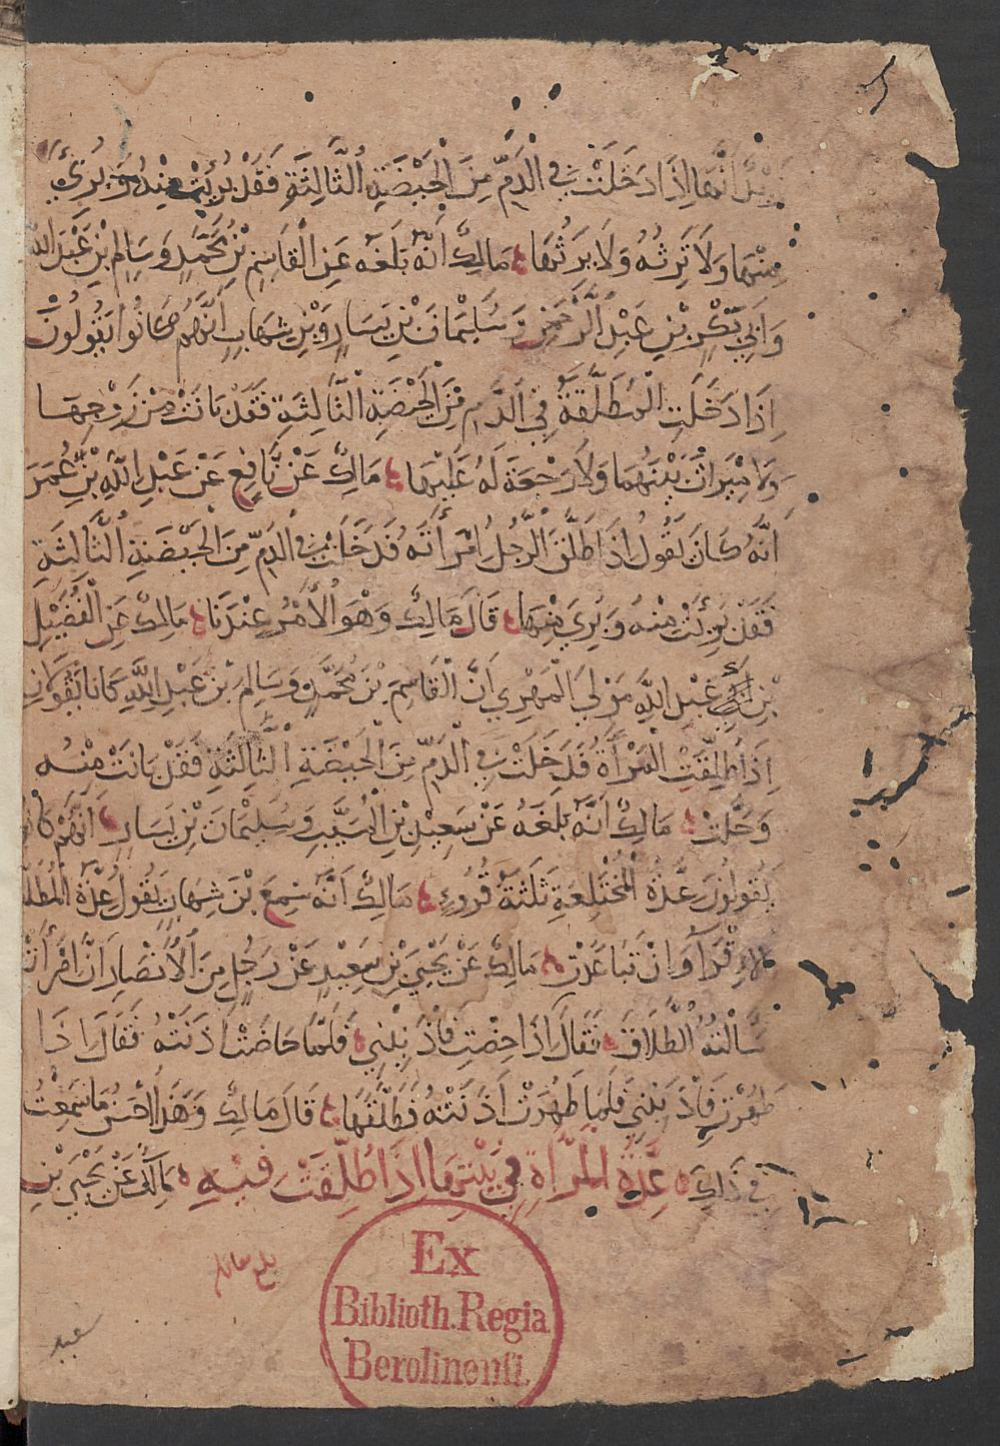 أَنَّهَا إِذَا دَخَلَتْ فِي الدَّمِ مِنَ الْحَيْضَةِ الثَّالِثَةِ فَقَدْ بَرِئَتْ مِنْهُ وَبَرِئَ
مِنْهَا وَلَا تَرِثُهُ وَلَا يَرِثُهَا مَالِكٌ أَنَّهُ بَلَغَهُ عَنِ الْقَاسِمِ بْنِ مُحَمَّدٍ وَسَالِمِ بْنِ عَبْدِ اللَّهِ
وَأَبِي بَكْرِ بْنِ عَبْدِ الرَّحْمٰنِ وَسُلَيْمَانَ بْنِ يَسَارٍ وَبْنِ شِهَابٍ أَنَّهُمْ كَانُوا يَقُولُونَ
إِذَا دَخَلَتِ الْمُطَلَّقَةُ فِي الدَّمِ مِنَ الْحَيْضَةِ الثَّالِثَةِ فَقَدْ بَانَتْ مِنْ زَوْجِهَا
وَلَا مِيْرَاثَ بَيْنَهُمَا وَلَا رَجْعَةَ لَهُ عَلَيْهَا مَالِكٌ عَنْ نَافِعٍ عَنْ عَبْدِ اللَّهِ بْنِ عُمَرَ
أَنَّهُ كَانَ يَقُولُ إِذَا طَلَّقَ الرَّجُلُ امْرَأَتَهُ فَدَخَلَتْ فِي الدَّمِ مِنَ الْحَيْضَةِ الثَّالِثَةِ
فَقَدْ بَرِئَتْ مِنْهُ وَبَرِئَ مِنْهَا قَالَ مَالِكٌ وَهْوَ الْأَمْرُ عِنْدَنَا مَالِكٌ عَنِ الْفُضَيْلِ
بْنِ أَبِي عَبْدِ اللَّهِ مَوْلَى الْمَهْرِي أَنَّ الْقَاسِمَ بْنَ مُحَمَّدٍ وَسَالِمَ بْنَ عَبْدِ اللَّهِ كَانَا يَقُولَانِ
إِذَا طُلِّقَتِ الْمَرْأَةُ فَدَخَلَتْ فِي الدَّمِ مِنَ الْحَيْضَةِ الثَّالِثَةِ فَقَدْ بَانَتْ مِنْهُ
وَحَلَّتْ مَالِكٌ أَنَّهُ بَلَغَهُ عَنْ سَعِيْدِ بْنِ الْمُسَيَّبِ وَسُلَيْمَانَ بْنِ يَسَارٍ أَنَّهُمْ كَانُوا
يَقُولُونَ عِدَّةُ الْمُخْتَلِعَةِ ثَلٰثَةُ قُرُوءٍ مَالِكٌ أَنَّهُ سَمِعَ بْنَ شِهَابٍ يَقُولُ عِدَّةُ الْمُطَلَّقَةِ
الْأَقْرَاءُ وَإِنْ تَبَاعَدَتْ مَالِكٌ عَنْ يَحْيَى بْنِ سَعِيْدٍ عَنْ رَجُلٍ مِنَ الْأَنْصَارِ أَنَّ امْرَأَتَهُ
سَأَلَتْهُ الطَّلَاقَ فَقَالَ إِذَا حِضْتِ فَآذِنِيْنِي فَلَمَّا حَاضَتْ آذَنَتْهُ فَقَالَ إِذَا
طَهُرْتِ فَآذِنِيْنِي فَلَمَّا طَهُرَتْ آذَنَتْهُ فَطَلَّقَهَا قَالَ مَالِكٌ وَهَذَا أَحْسَنُ مَا سَمِعْتُ
فِي ذَلِكَ عِدَّةُ الْمَرْأَةِ فِي بَيْتِهَا إِذَا طُلِّقَتْ فِيْهِ مَالِكٌ عَنْ يَحْيَى بْنِ
سعيد
Ex
Biblioth. Regia
Berolinensi.